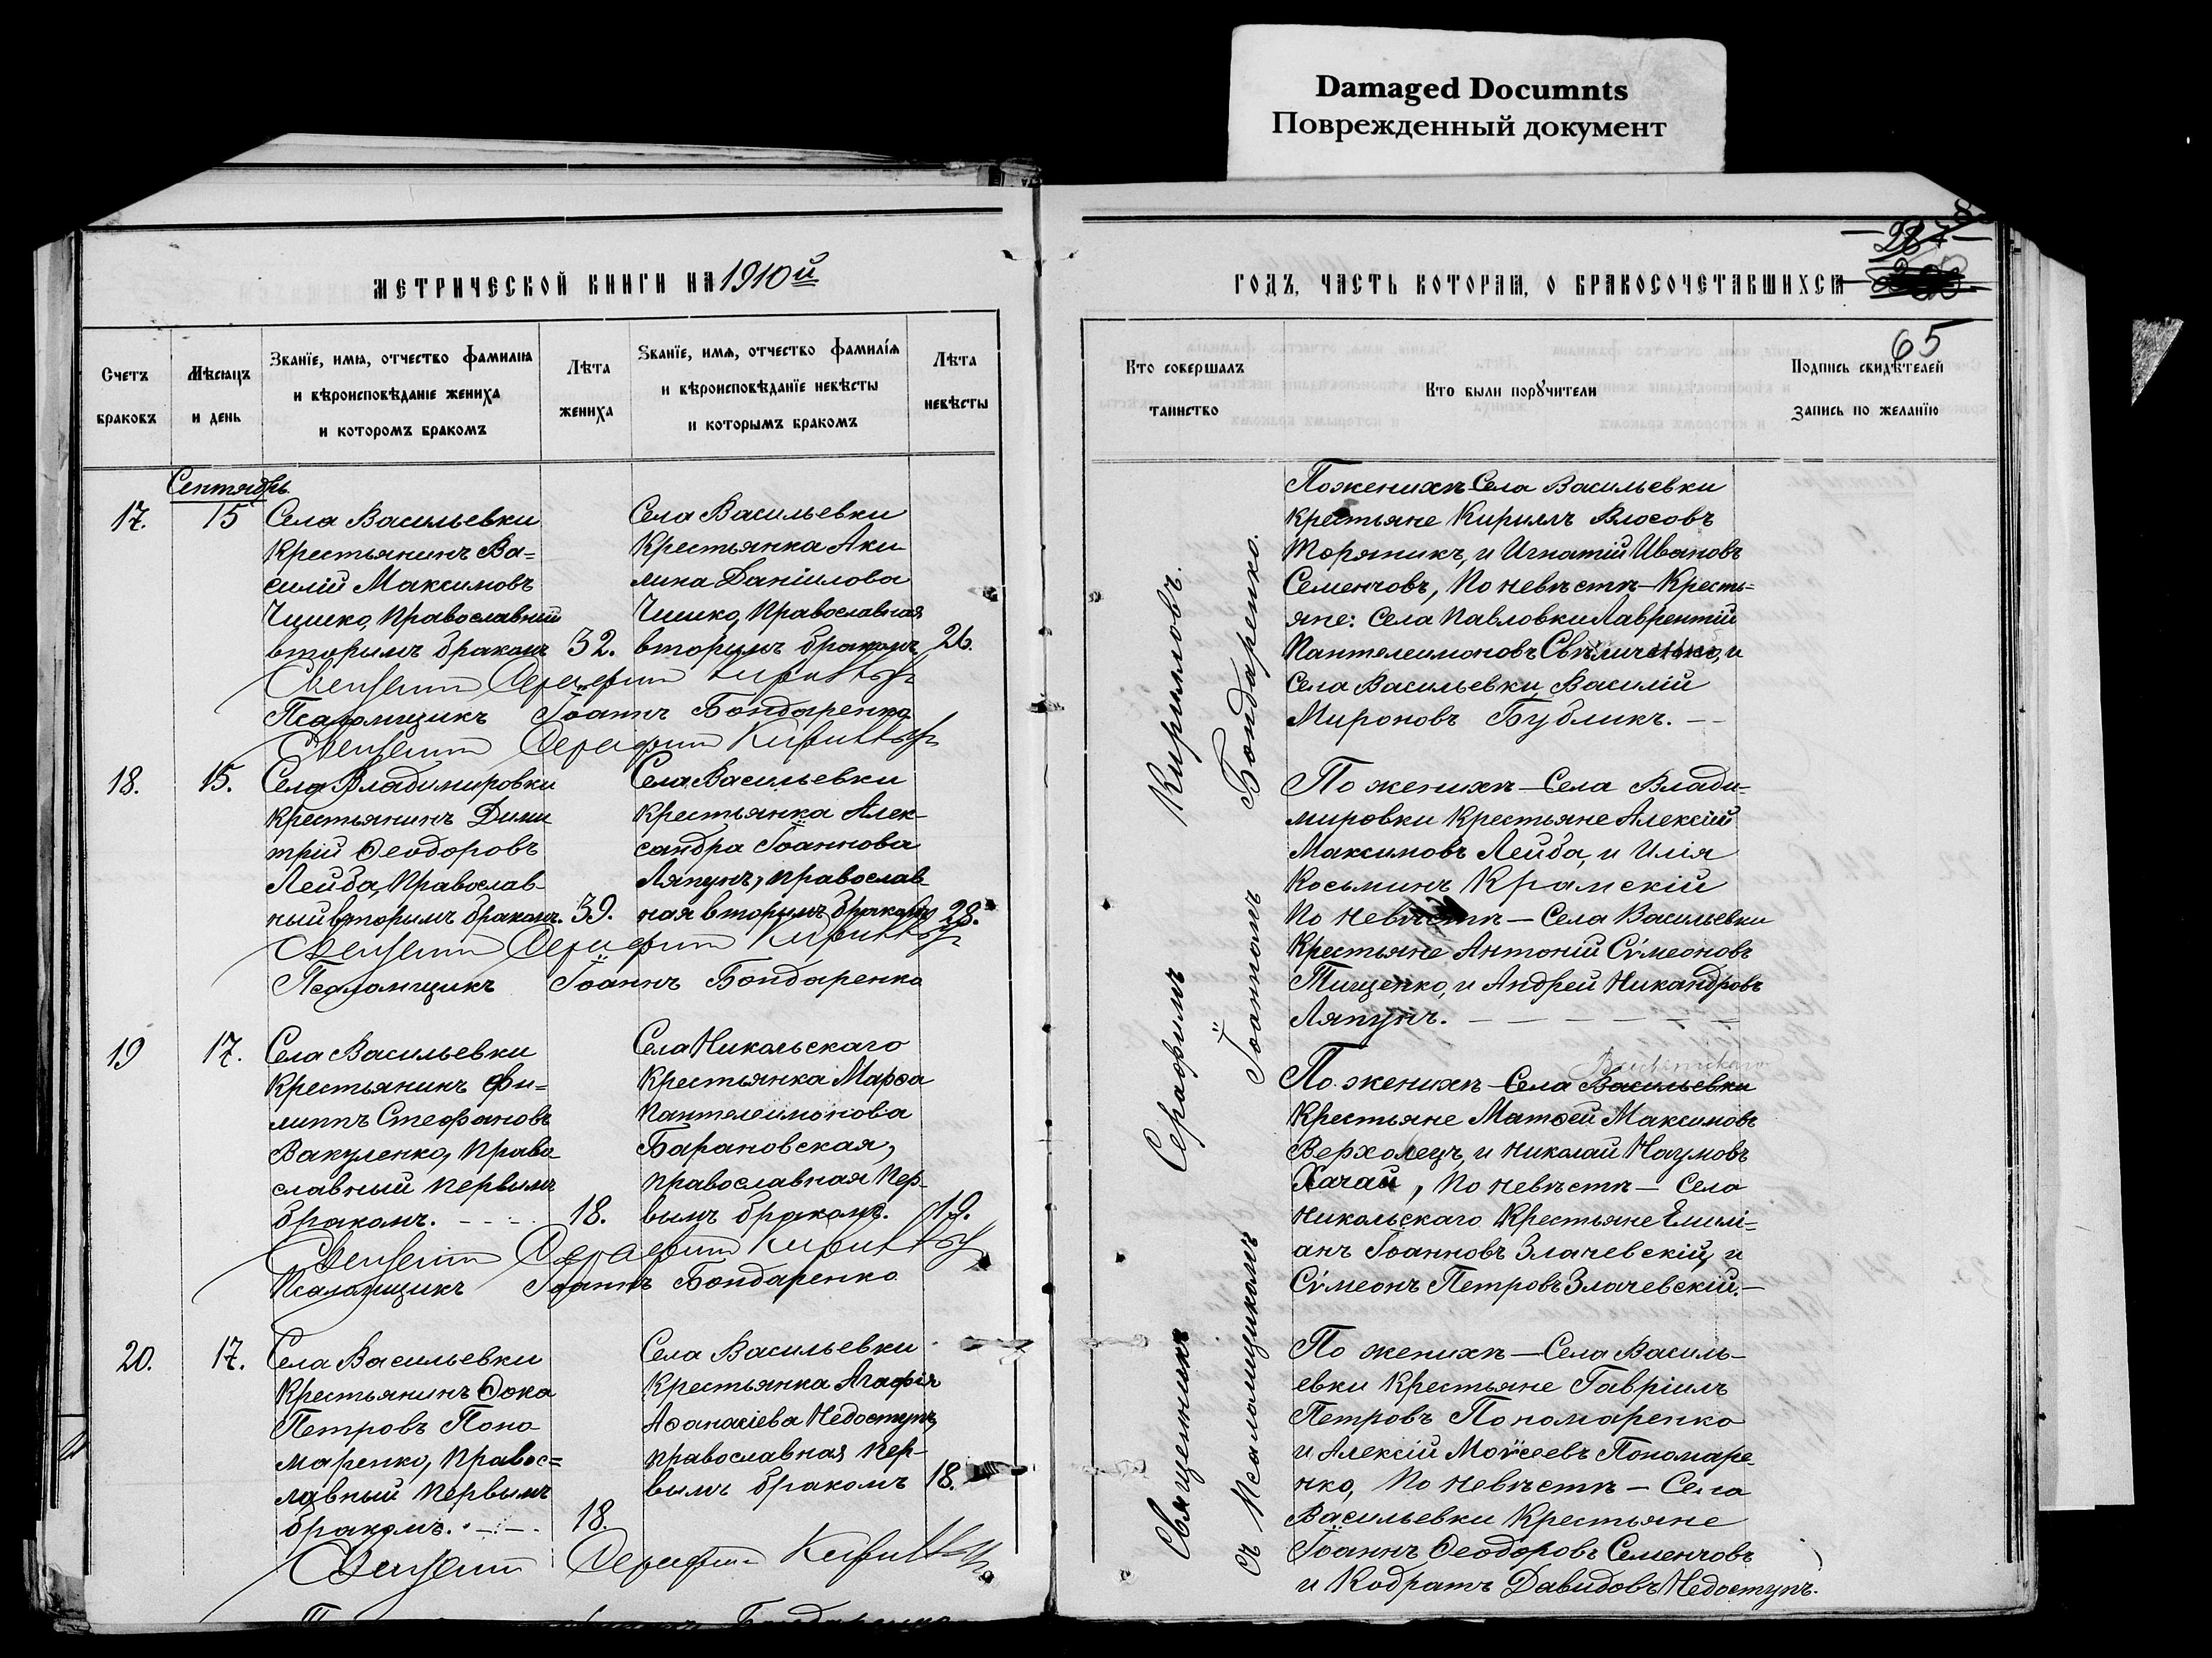 Damaged Documnts
Поврежденный документ
МЕТРИЧЕСКОЙ КНИГИ НА 1910й
Счетъ браковъ
Мѣсяцъ и день
Званїе, имя, отчество фамилия
и вѣроисповѣданїе жениха
и которомъ бракомъ
Лѣта жениха
Ѕванїе, имя, отчество фамилїя
и вѣроисповѣданїе невѣсты
и которымъ бракомъ
Лѣта невѣсты
Сентябрь
17. 15
Села Васильевки
крестьянинъ Ва=
силій Максимовъ
Чишко, православный
вторымъ бракомъ 32.
Села Васильевки
крестьянка Аки
лина Даніилова
Чишко, православная
вторымъ бракомъ 26.
Священник Серафим Кириллов
Псаломщикъ Іоаннъ Бондаренко
Священник Серафим Кириллов
18. 15.
Села Владимировки
крестьянинъ Дими
трій Ѳеодоровъ
Лейба, православ-
ный вторымъ бракомъ. 39.
Села Васильевки
крестьянка Алек-
сандра Іоаннова
Ляпунъ, православ-
ная вторымъ бракомъ 28.
Священник Серафим Кириллов
Псаломщикъ Іоаннъ Бондаренко
19 17.
Села Васильевки
крестьянинъ Фи=
липпъ Стефановъ
Вакуленко, право
славный первымъ
бракомъ. 18.
Села Никольскаго
крестьянка Марѳа
Пантелеимонова
Барановская,
православная пер-
вымъ бракомъ. 19.
Священник Серафим Кириллов
Псаломщикъ Іоаннъ Бондаренко
20. 17.
Села Васильевки
крестьянинъ Ѳока
Петровъ Поно
маренко, правос=
лавный первымъ
бракомъ. 18.
Села Васильевки
крестьянка Агафія
Аѳанасіева Недоступъ
православная пер-
вымъ бракомъ 18.
Священник Серафим Кириллов
ГОДЪ, ЧАСТЬ КОТОРАЯ, О БРАКОСОЧЕТАВШИХСЯ
65
Кто совершалъ таинство
Кто были порꙋчители
Подпись свидѣтелей
запись по желанїю
Священникъ Серафимъ Кирилловъ.
съ Псаломщикомъ Іоанномъ Бондаренко.
По женихѣ Села Васильевки
крестьяне Кириллъ Власовъ
Торяникъ, и Игнатій Ивановъ
Семенчовъ, По невѣстѣ – Кресть=
яне: села Павловки Лаврентій
Пантелеимоновъ и
Села Васильевки Василій
Мироновъ Бубликъ. –
По женихѣ – Села Влади-
мировки крестьяне Алексій
Максимовъ Лейба, и Илія
Косьминъ Крамскій
По невѣстѣ – Села Васильевки
Крестьяне Антоній Сѵмеоновъ
Тищенко, и Андрей Никандровъ
Ляпунъ. –
По женихѣ – Села Васильевки
Крестьяне Матѳей Максимовъ
Верхолецъ, и Николай Наумовъ
Хачай, По невѣстѣ – Села
Никольскаго Крестьяне Емилі=
анъ Іоанновъ Злачевскій, и
Сѵмеонъ Петровъ Злачевскій. –
По женихѣ – Села Василь-
евки Крестьяне Гавріилъ
Петровъ Пономаренко
и Алексій Моѵсеевъ Пономаре-
нко, По невѣстѣ – Села
Васильевки Крестьяне
Іоаннъ Ѳеодоровъ Семенчовъ
и Кодратъ Давидовъ Недоступъ.